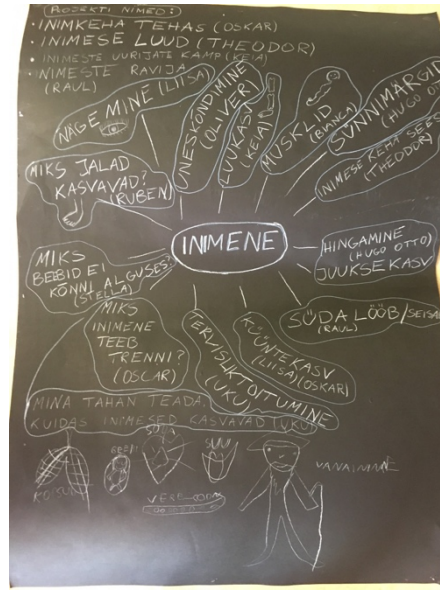 (PROJEKTI NIMED:)
• INIMKEHA TEHAS (OSKAR)
• INIMESE LUUD (THEODOR)
• INIMESTE UURIJATE KAMP (KEIA)
• INIMESTE RAVIJA
(RAUL)
NÄGEMINE (LIISA)
UNESKÕNDIMINE
(OLIVER)
LUUKASV
(KEIA)
MUSKLID
(BIANCA)
SÜNNIMÄRGID
(HUGO OTTO)
INIMESE KEHA SEES
(THEODOR)
MIKS JALAD
KASVAVAD?
(RUBEN)
INIMENE
HINGAMINE
(HUGO OTTO)
JUUKSEKASV
MIKS
BEEBID EI
KÕNNI ALGUSES?
(STELLA)
SÜDA LÖÖB/SEISAB
(RAUL)
MIKS
INIMENE
TEEB
TRENNI?
(OSCAR)
TERVISLIK TOITUMINE
(UKU)
KÜÜNTEKASV
(LIISA) (OSKAR)
MINA TAHAN TEADA,
KUIDAS INIMESED KASVAVAD (UKU)
VANAINIMENE